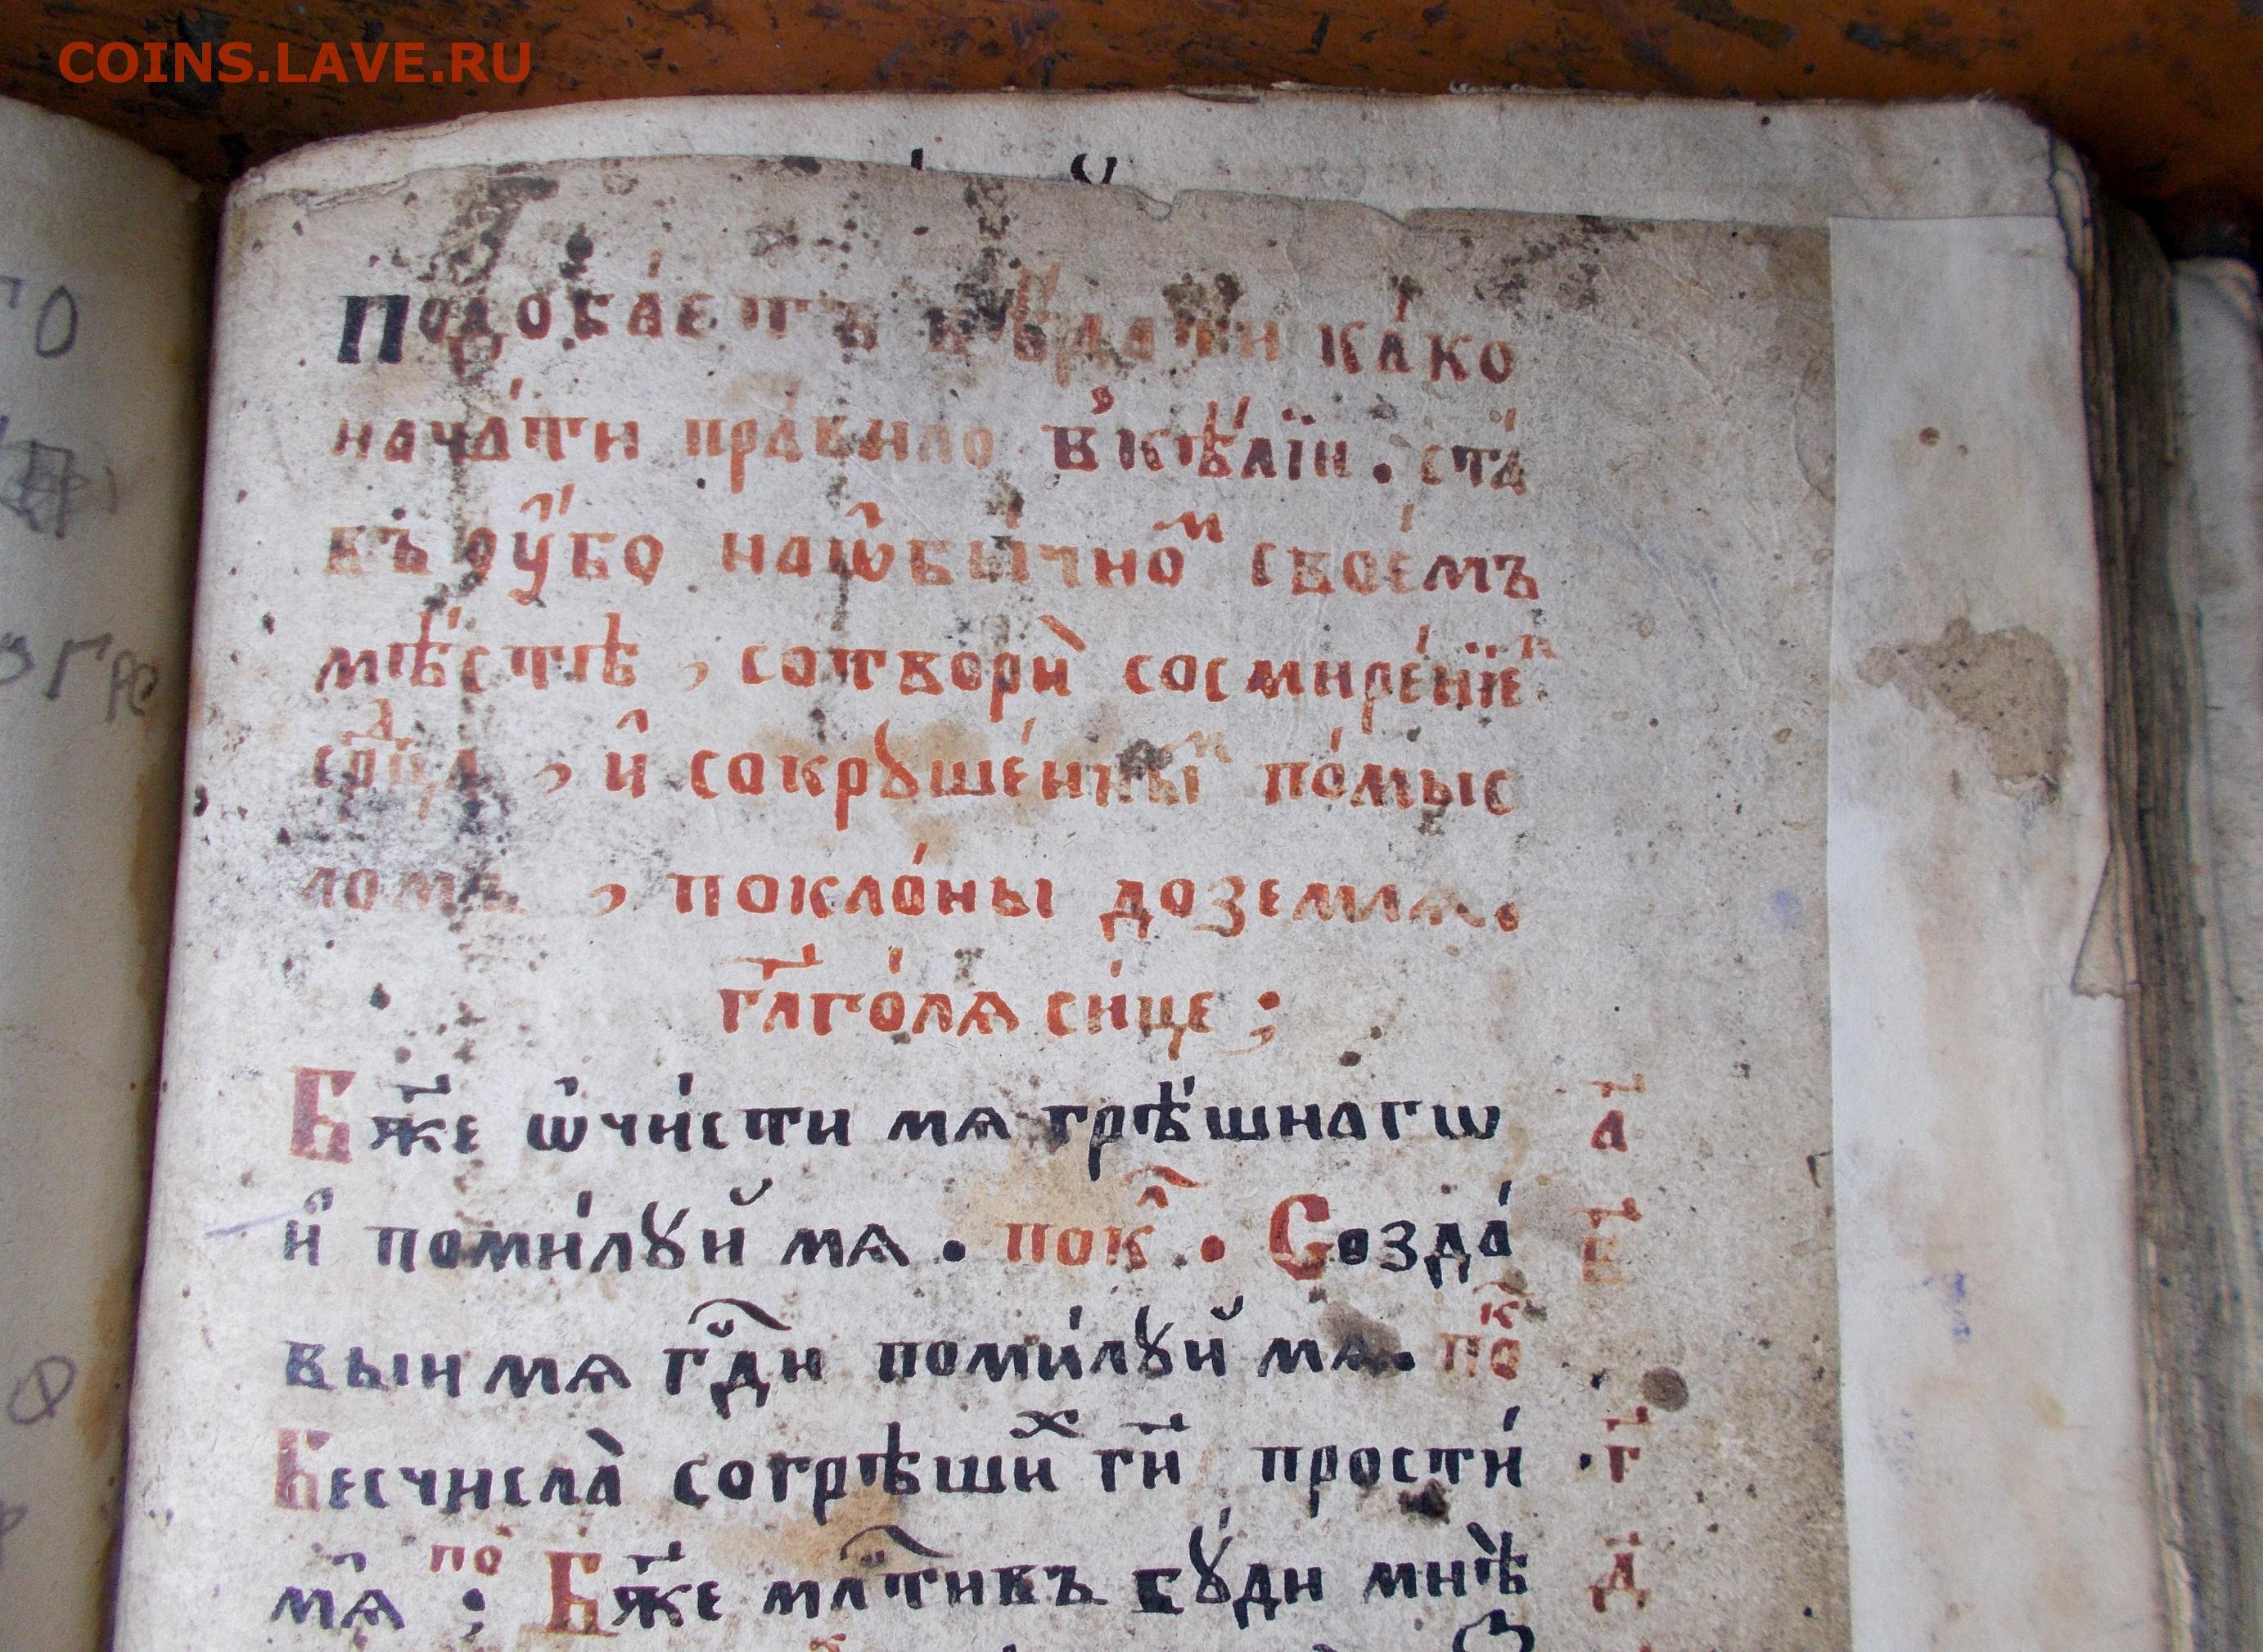 COINS.LAVE.RU
Подоба́етъ вѣ́дати ка́ко
нача́ти пра́вило в̾кѣ́лїи . ста́
въ оу҆́бо наѡ҆бы́чноⷨ свое́мъ
мѣ́стѣ , сотворѝ сосмире́нїеⷨ
срⷣца , и҆ сокрꙋше́нныⷨ по́мыс
ломъ , покло́ны доземлѧ .
гл҃го́лѧ си́це ;
Бж҃е ѡ҆чи́сти мѧ грѣ́шнагѡ а҃
и҆ поми́лꙋй мѧ . покⷧ҇ . Созда́ в҃
выи мѧ гдⷭ҇и поми́лꙋй мѧ . поⷦ
Бесчисла̀ согрѣшиⷯ гд҃и прости́ г҃
мѧ̀ по ; Бж҃е млⷭ҇тивъ бꙋ́ди мнѣ̀ д҃